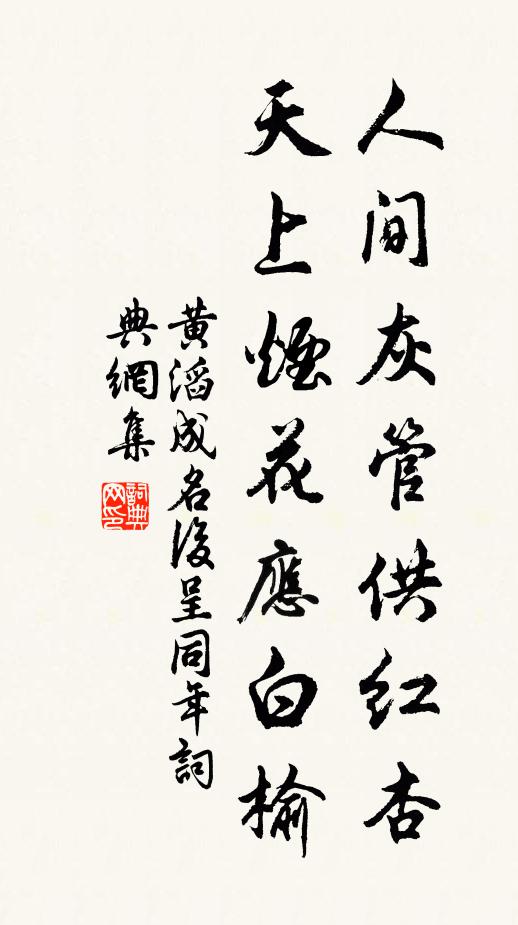 人间灰管供红杏
天上煙花應白榆
黄滔成名後呈同年詞
典網集
詞典
网印